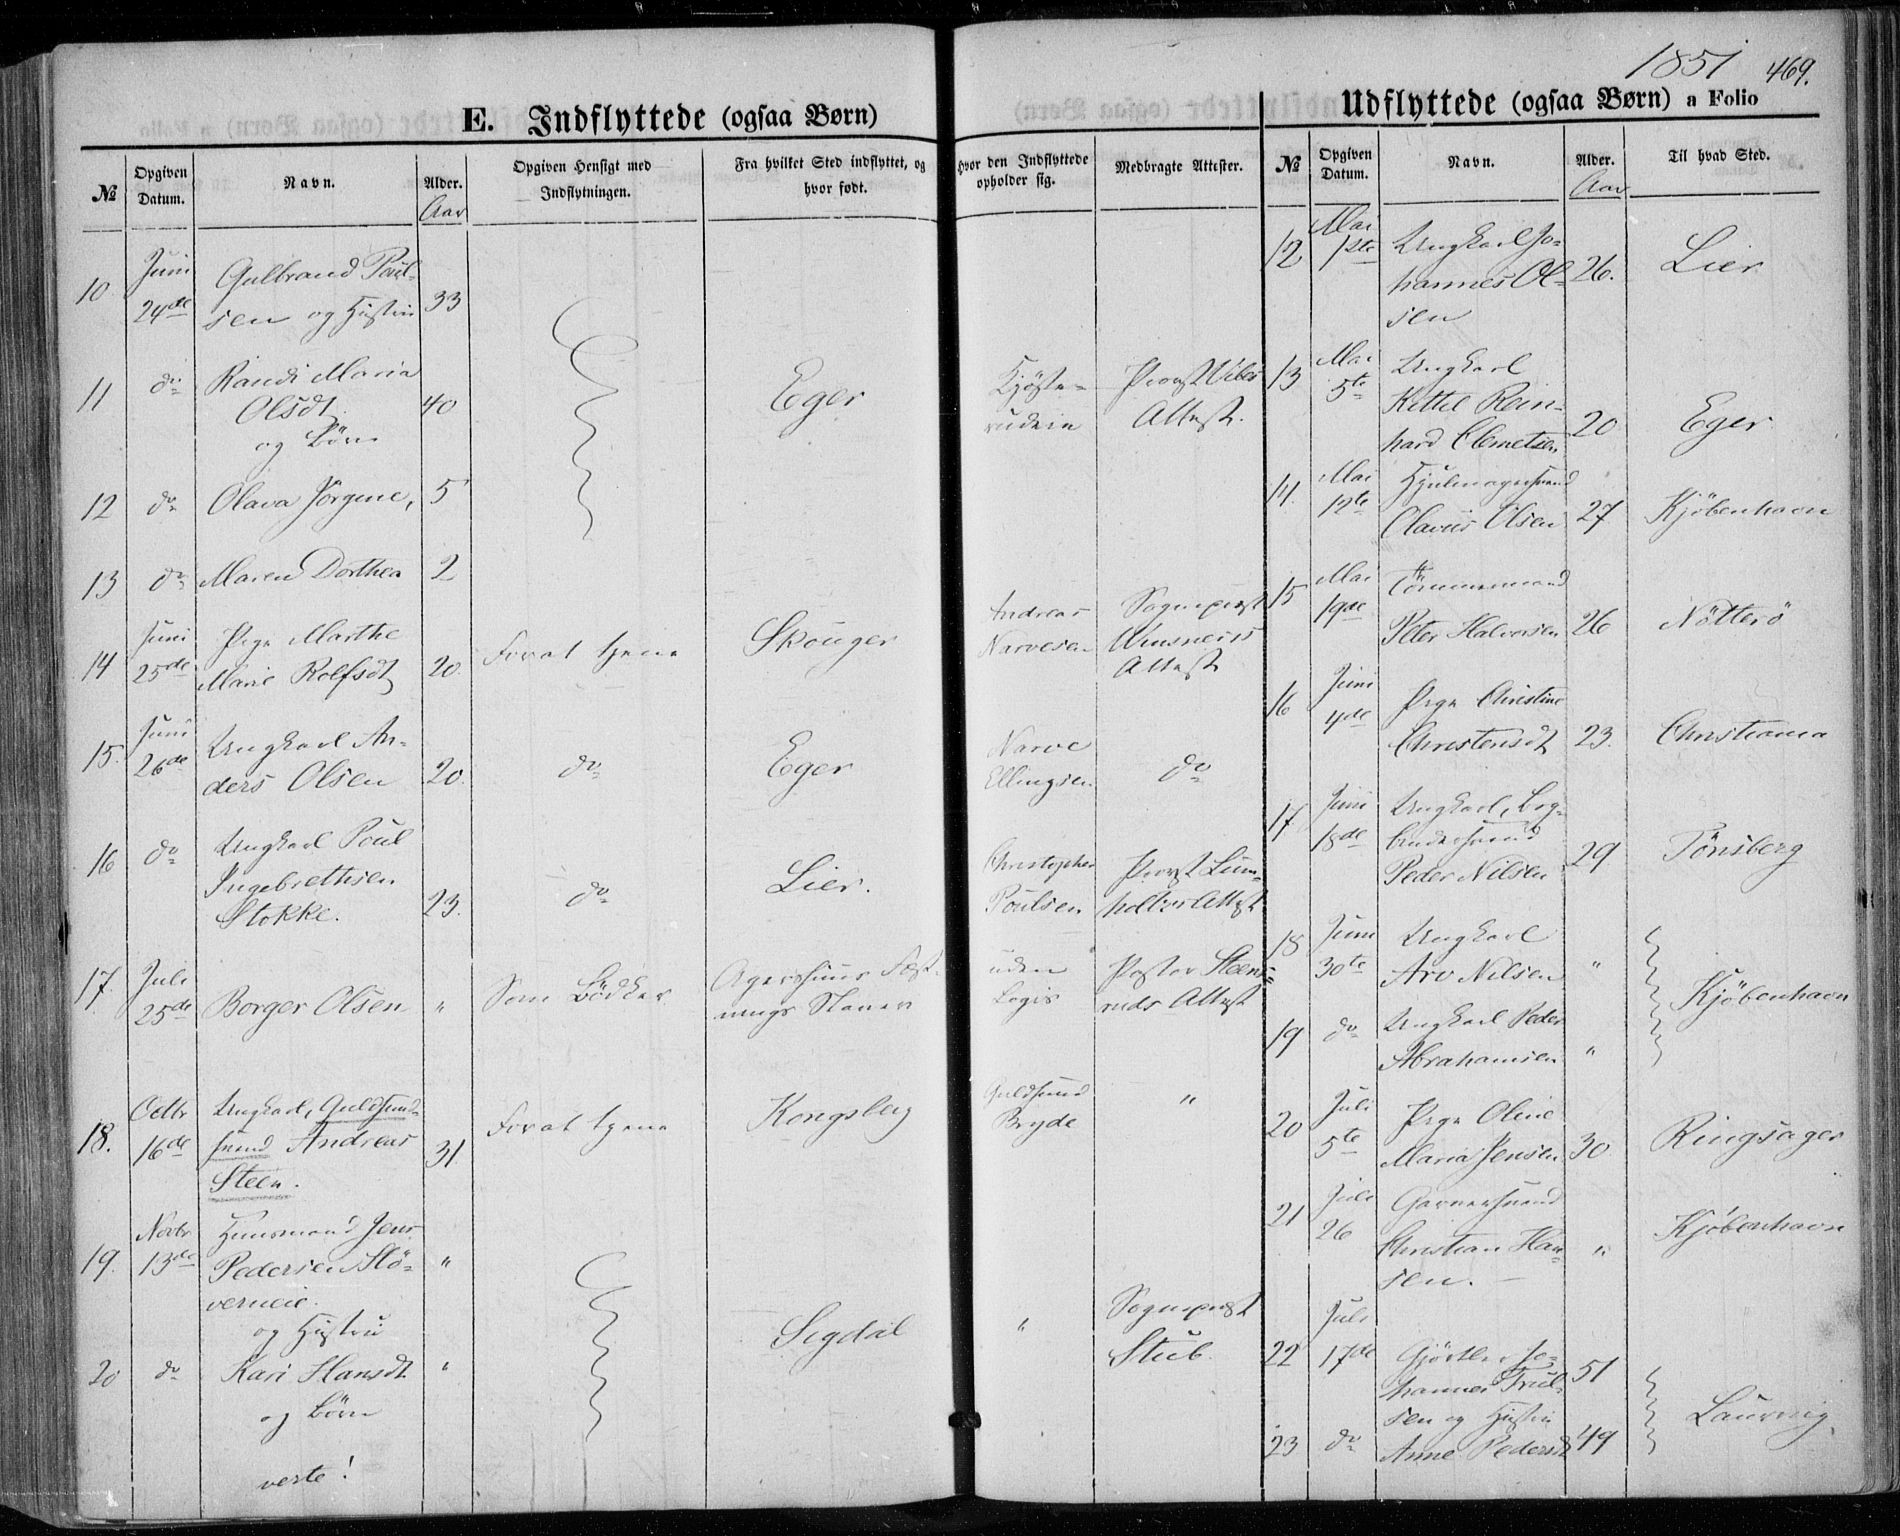 1851 469.
E. Indflyttede (ogsaa Børn)
Udflyttede (ogsaa Børn) a Folio
№ Opgiven Datum. Navn. Alder. Opgiven Hensigt med Indflytningen. Fra hvilket Sted indflyttet, og hvor født. Hvor den Indflyttede opholder sig. Medbragte Attester.
Aar
10 Juni 24de Gulbrand Poul-
sen og Hustru 33
11 do Randi Maria
Olsdt 40 Eger Provst Attest.
og Børn
12 do Olava Jörgine, 5
13 do Maren Dorthea 2
14 Juni 25de Pige Marthe
Marie Rolfsdt 20. For at tjene Skouger Andreas Narvesen Sognepræst Attest
15. Juni 26de Ungkarl An-
ders Olsen 20. do Eger Narve Ellingsen do
16 do Ungkarl Poul
Ingebrethsen
Stokke. 23. do Lier. Christopher Poulsen Provst Lum-
holtzes Attest
17. Juli 25de Borger Olsen " Som Bödker Agershuus Fæst-
nings Slaveri uden Logis Pastor Steens-
ruds Attest
18. Octbr 16de Ungkarl, Guldsmed-
svend Andreas
Steen. 31. For at tjene Kongsberg Guldsmed Bryde "
19. Novbr 13de Huusmand Jens
Pedersen Stö-
verneie. "
og Hustru Sigdal " Sognepræst Stub.
20 do Kari Hansdt "
og Børn
verte!
№ Opgiven Datum. Navn. Alder. Til hvad Sted.
Aar
12 Mai 1ste Ungkarl Jo-
hannes Ol-
sen 26. Lier
13 Mai 5te Ungkarl
Kittil Rein-
hard Clemetsen 20 Eger
14. Mai 12te Hjulmagersvend
Olavus Olsen 27 Kjöbenhavn
15 Mai 19de Tömmermand
Peter Halvorsen 26 Nötterö
16 Juni 4de Pige Christine
Christensdt 23. Christiania
17 Juni 18de Ungkarl, Bog-
bindersvend
Peder Nilsen 29 Tönsberg
18 Juni 30te Ungkarl
Arv Nilsen " Kjöbenhavn
19 do Ungkarl Peder
Abrahamsen "
20 Juli 5te Pige Oline
Maria Jensen 30 Ringsager
21 Juli 26 Garversvend
Christian Han-
sen. " Kjöbenhavn
22 Juli 17de Gjörtler Jo-
hannes Trul-
sen og Hustru 51 Laurvig
23 do Anne Pedersdt 49